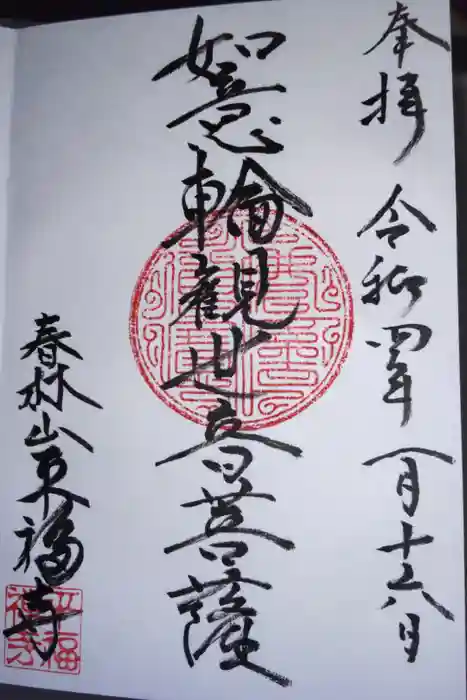 奉拝 令和四年八月十六日
如意輪観世音菩薩
春林山東福寺